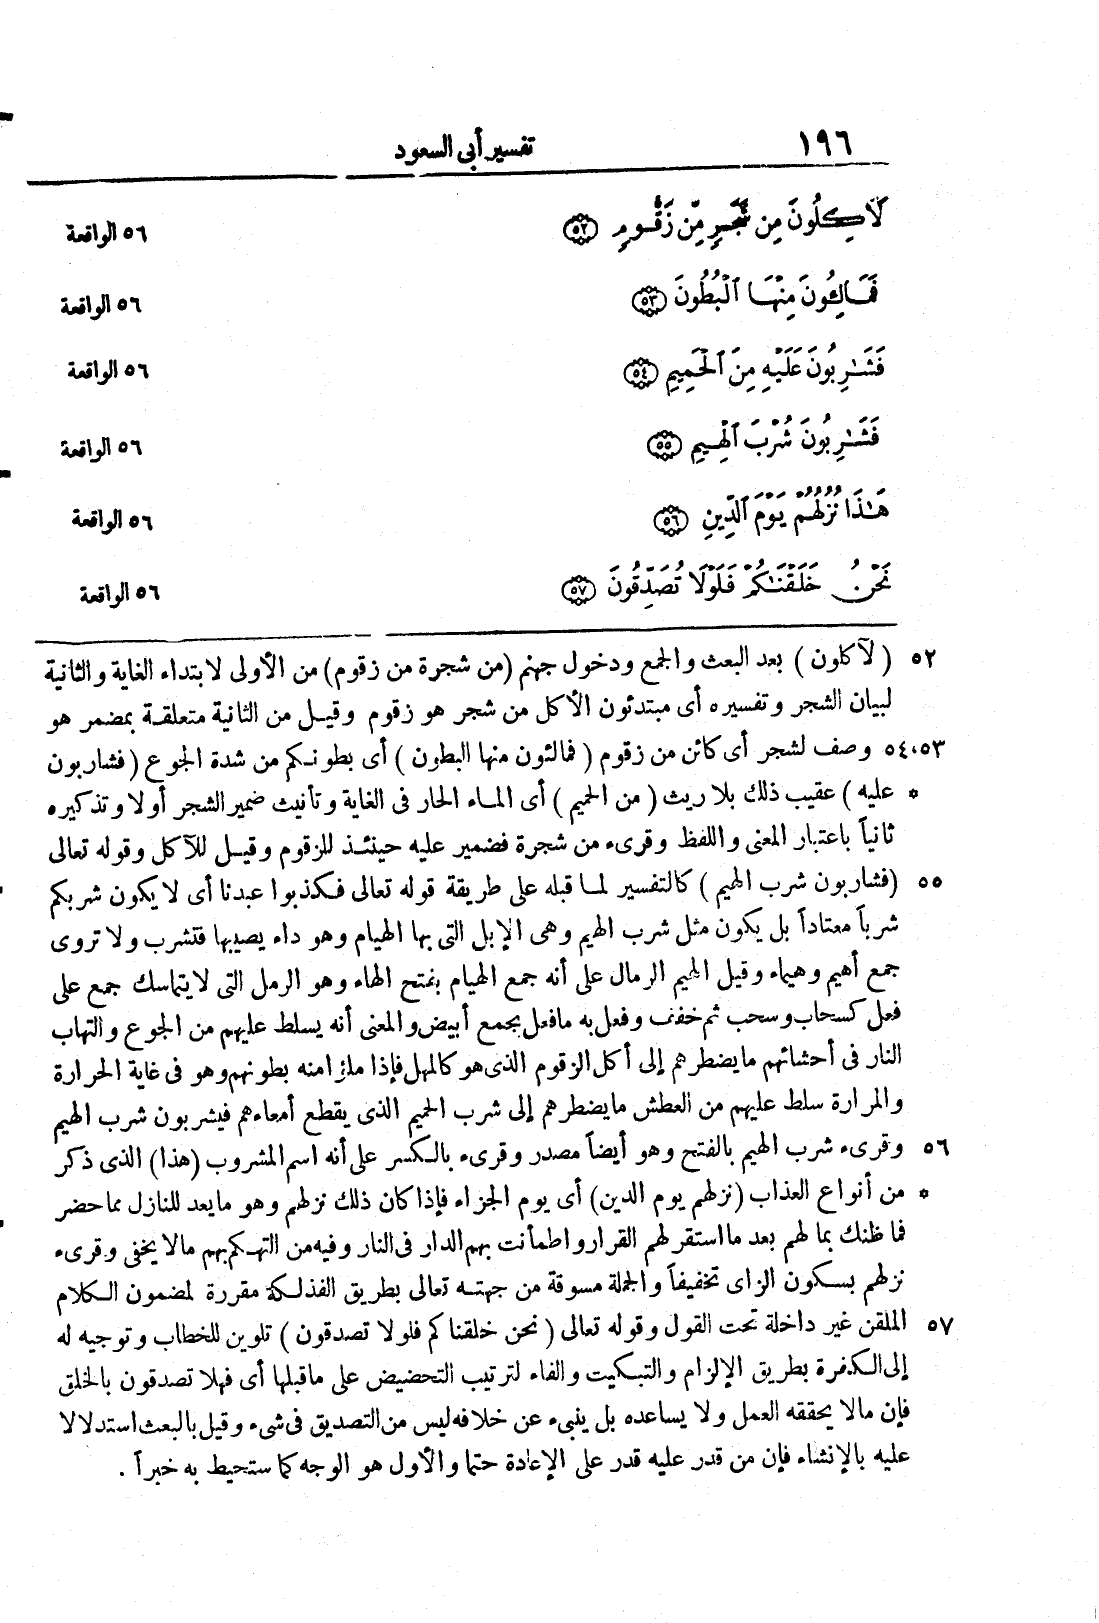 ١٩٦ تفسير أبى السعود
لَآكِلُونَ مِن شَجَرٍ مِّن زَقُّومٍ ٥٢ ٥٦ الواقعة
فَمَالِئُونَ مِنْهَا ٱلْبُطُونَ ٥٣ ٥٦ الواقعة
فَشَٰرِبُونَ عَلَيْهِ مِنَ ٱلْحَمِيمِ ٥٤ ٥٦ الواقعة
فَشَٰرِبُونَ شُرْبَ ٱلْهِيمِ ٥٥ ٥٦ الواقعة
هَٰذَا نُزُلُهُمْ يَوْمَ ٱلدِّينِ ٥٦ ٥٦ الواقعة
نَحْنُ خَلَقْنَٰكُمْ فَلَوْلَا تُصَدِّقُونَ ٥٧ ٥٦ الواقعة
٥٢ ( لآكلون ) بعد البعث والجمع ودخول جهنم (من شجرة من زقوم) من الأولى لابتداء الغاية والثانية
لبيان الشجر وتفسيره أى مبتدئون الأكل من شجر هو زقوم وقيل من الثانية متعلقة بمضمر هو
٥٤،٥٣ وصف لشجر أى كائن من زقوم ( فمالئون منها البطون ) أى بطونكم من شدة الجوع ( فشاربون
* عليه ) عقيب ذلك بلا ريث ( من الحميم ) أى الماء الحار فى الغاية وتأنيث ضمير الشجر أولا وتذكيره
ثانياً باعتبار المعنى واللفظ وقرىء من شجرة فضمير عليه حينئذ للزقوم وقيل للآكل وقوله تعالى
٥٥ (فشاربون شرب الهيم ) كالتفسير لما قبله على طريقة قوله تعالى فكذبوا عبدنا أى لا يكون شربكم
شرباً معتاداً بل يكون مثل شرب الهيم وهى الإبل التى بها الهيام وهو داء يصيبها فتشرب ولا تروى
جمع أهيم وهيماء وقيل الهيم الرمال على أنه جمع الهيام بفتح الهاء وهو الرمل التى لا يتماسك جمع على
فعل كسحاب وسحب ثم خفف وفعل به ما فعل بجمع أبيض والمعنى أنه يسلط عليهم من الجوع والتهاب
النار فى أحشائهم ما يضطرهم إلى أكل الزقوم الذى هو كالمهل فإذا ملؤا منه بطونهم وهو فى غاية الحرارة
والمرارة سلط عليهم من العطش ما يضطرهم إلى شرب الحميم الذى يقطع أمعاءهم فيشربون شرب الهيم
٥٦ وقرىء شرب الهيم بالفتح وهو أيضاً مصدر وقرىء بالكسر على أنه اسم المشروب (هذا) الذى ذكر
* من أنواع العذاب (نزلهم يوم الدين) أى يوم الجزاء فإذا كان ذلك نزلهم وهو ما يعد للنازل مما حضر
فما ظنك بما لهم بعد ما استقر لهم القرار واطمأنت بهم الدار فى النار وفيه من التهكم بهم مالا يخفى وقرىء
نزلهم بسكون الزاى تخفيفاً والجملة مسوقة من جهته تعالى بطريق الفذلكة مقررة لمضمون الكلام
٥٧ الملقن غير داخلة تحت القول وقوله تعالى ( نحن خلقناكم فلولا تصدقون ) تلوين للخطاب وتوجيه له
إلى الكفرة بطريق الإلزام والتبكيت والفاء لترتيب التحضيض على ماقبلها أى فهلا تصدقون بالخلق
فإن مالا يحققه العمل ولا يساعده بل ينبىء عن خلافه ليس من التصديق فى شىء وقيل بالبعث استدلالا
عليه بالإنشاء فإن من قدر عليه قدر على الإعادة حتما والأول هو الوجه كما ستحيط به خبراً .